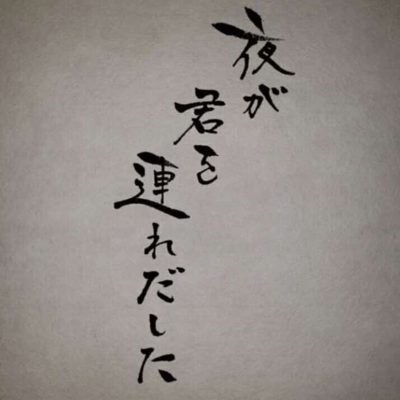 夜が
君を
連れだした